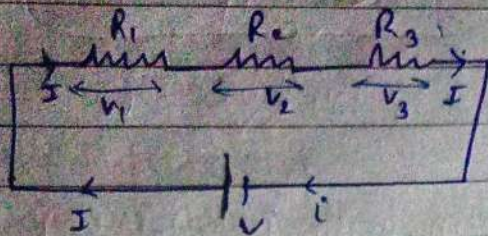 R₁ R₂ R₃
I V₁ V₂ V₃ I
I V i